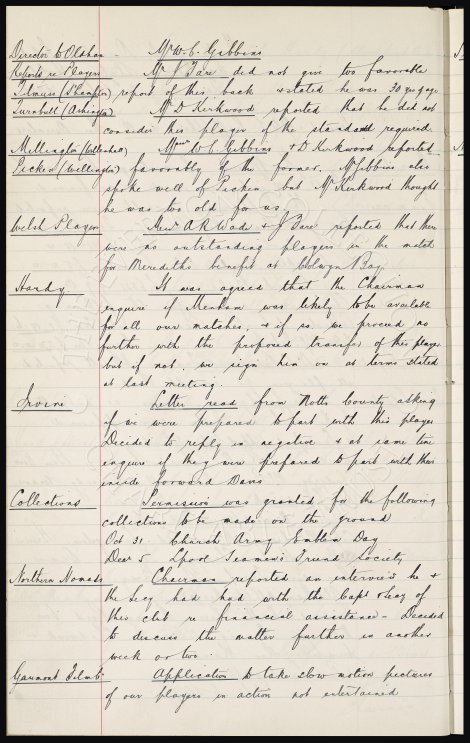 Director to Oldham - Mr W. C. Gibbins
Reports re Players Mr J Fare did not give too favorable
Jilmess (S'hampton) report of this back & stated he was 30 yrs of age
Turnbull (Ashington) Mr D Kirkwood reported that he did not
consider this player of the standard required
Millington (Willenhall) Messrs W C Gibbins & D Kirkwood reported
Picken (Wellington) favorably of the former. Mr Gibbins also
spoke well of Picken but Mr Kirkwood thought
he was too old for us.
Welsh Player Messrs A R Wade & J Fare reported that there
were no outstanding players in the match
for Merediths benefit at Colwyn Bay.
Hardy It was agreed that the Chairman
enquire if Menham was likely to be available
for all our matches, & if so we proceed no
further with the proposed transfer of this player
but if not, we sign him on at terms stated
at last meeting.
Irvine Letter read from Notts County asking
if we were prepared to part with this player
Decided to reply in negative & at same time
enquire if they were prepared to part with their
inside forward Davis.
Collections Permission was granted for the following
collections to be made on the ground
Oct 31 Church Army Emblem Day
Decr 5 Lpool Seamen's Friend Society
Northern Nomads Chairman reported an interview he &
the Secy had had with the Capt & Secy of
this club re financial assistance - Decided
to discuss the matter further in another
week or two.
Gaumont Film Co Application to take slow motion pictures
of our players in action not entertained